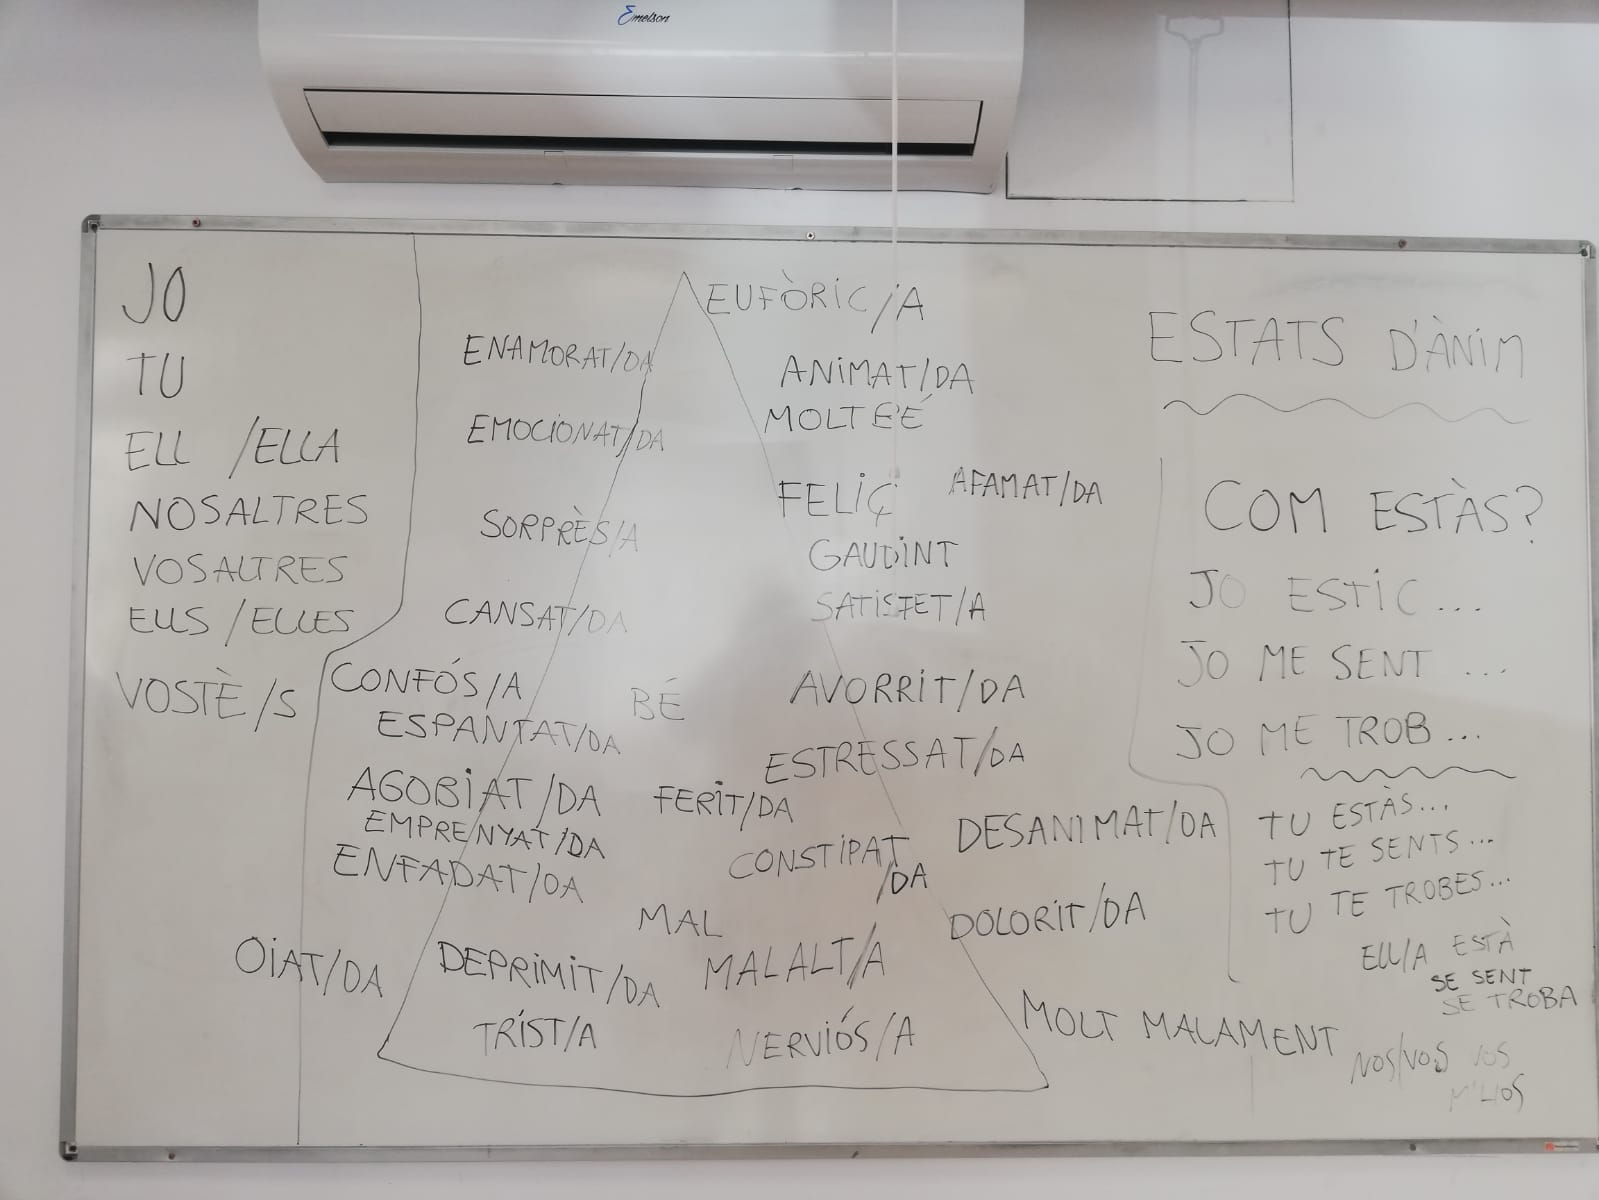 Emelson
JO
TU
ELL /ELLA
NOSALTRES
VOSALTRES
ELLS /ELLES
VOSTÈ/S
EUFÒRIC/A
ENAMORAT/DA
ANIMAT/DA
EMOCIONAT/DA
MOLT BÉ
FELIÇ
AFAMAT/DA
SORPRÈS/A
GAUDINT
CANSAT/DA
SATISFET/A
CONFÓS/A
BÉ
AVORRIT/DA
ESPANTAT/DA
ESTRESSAT/DA
AGOBIAT/DA
FERIT/DA
EMPRENYAT/DA
DESANIMAT/DA
ENFADAT/DA
CONSTIPAT
/DA
MAL
DOLORIT/DA
OIAT/DA
DEPRIMIT/DA
MALALT/A
TRIST/A
NERVIÓS/A
MOLT MALAMENT
ESTATS D'ÀNIM
COM ESTÀS?
JO ESTIC...
JO ME SENT ...
JO ME TROB...
TU ESTÀS...
TU TE SENTS...
TU TE TROBES...
ELL/A ESTÀ
SE SENT
SE TROBA
NOS/VOS VOS